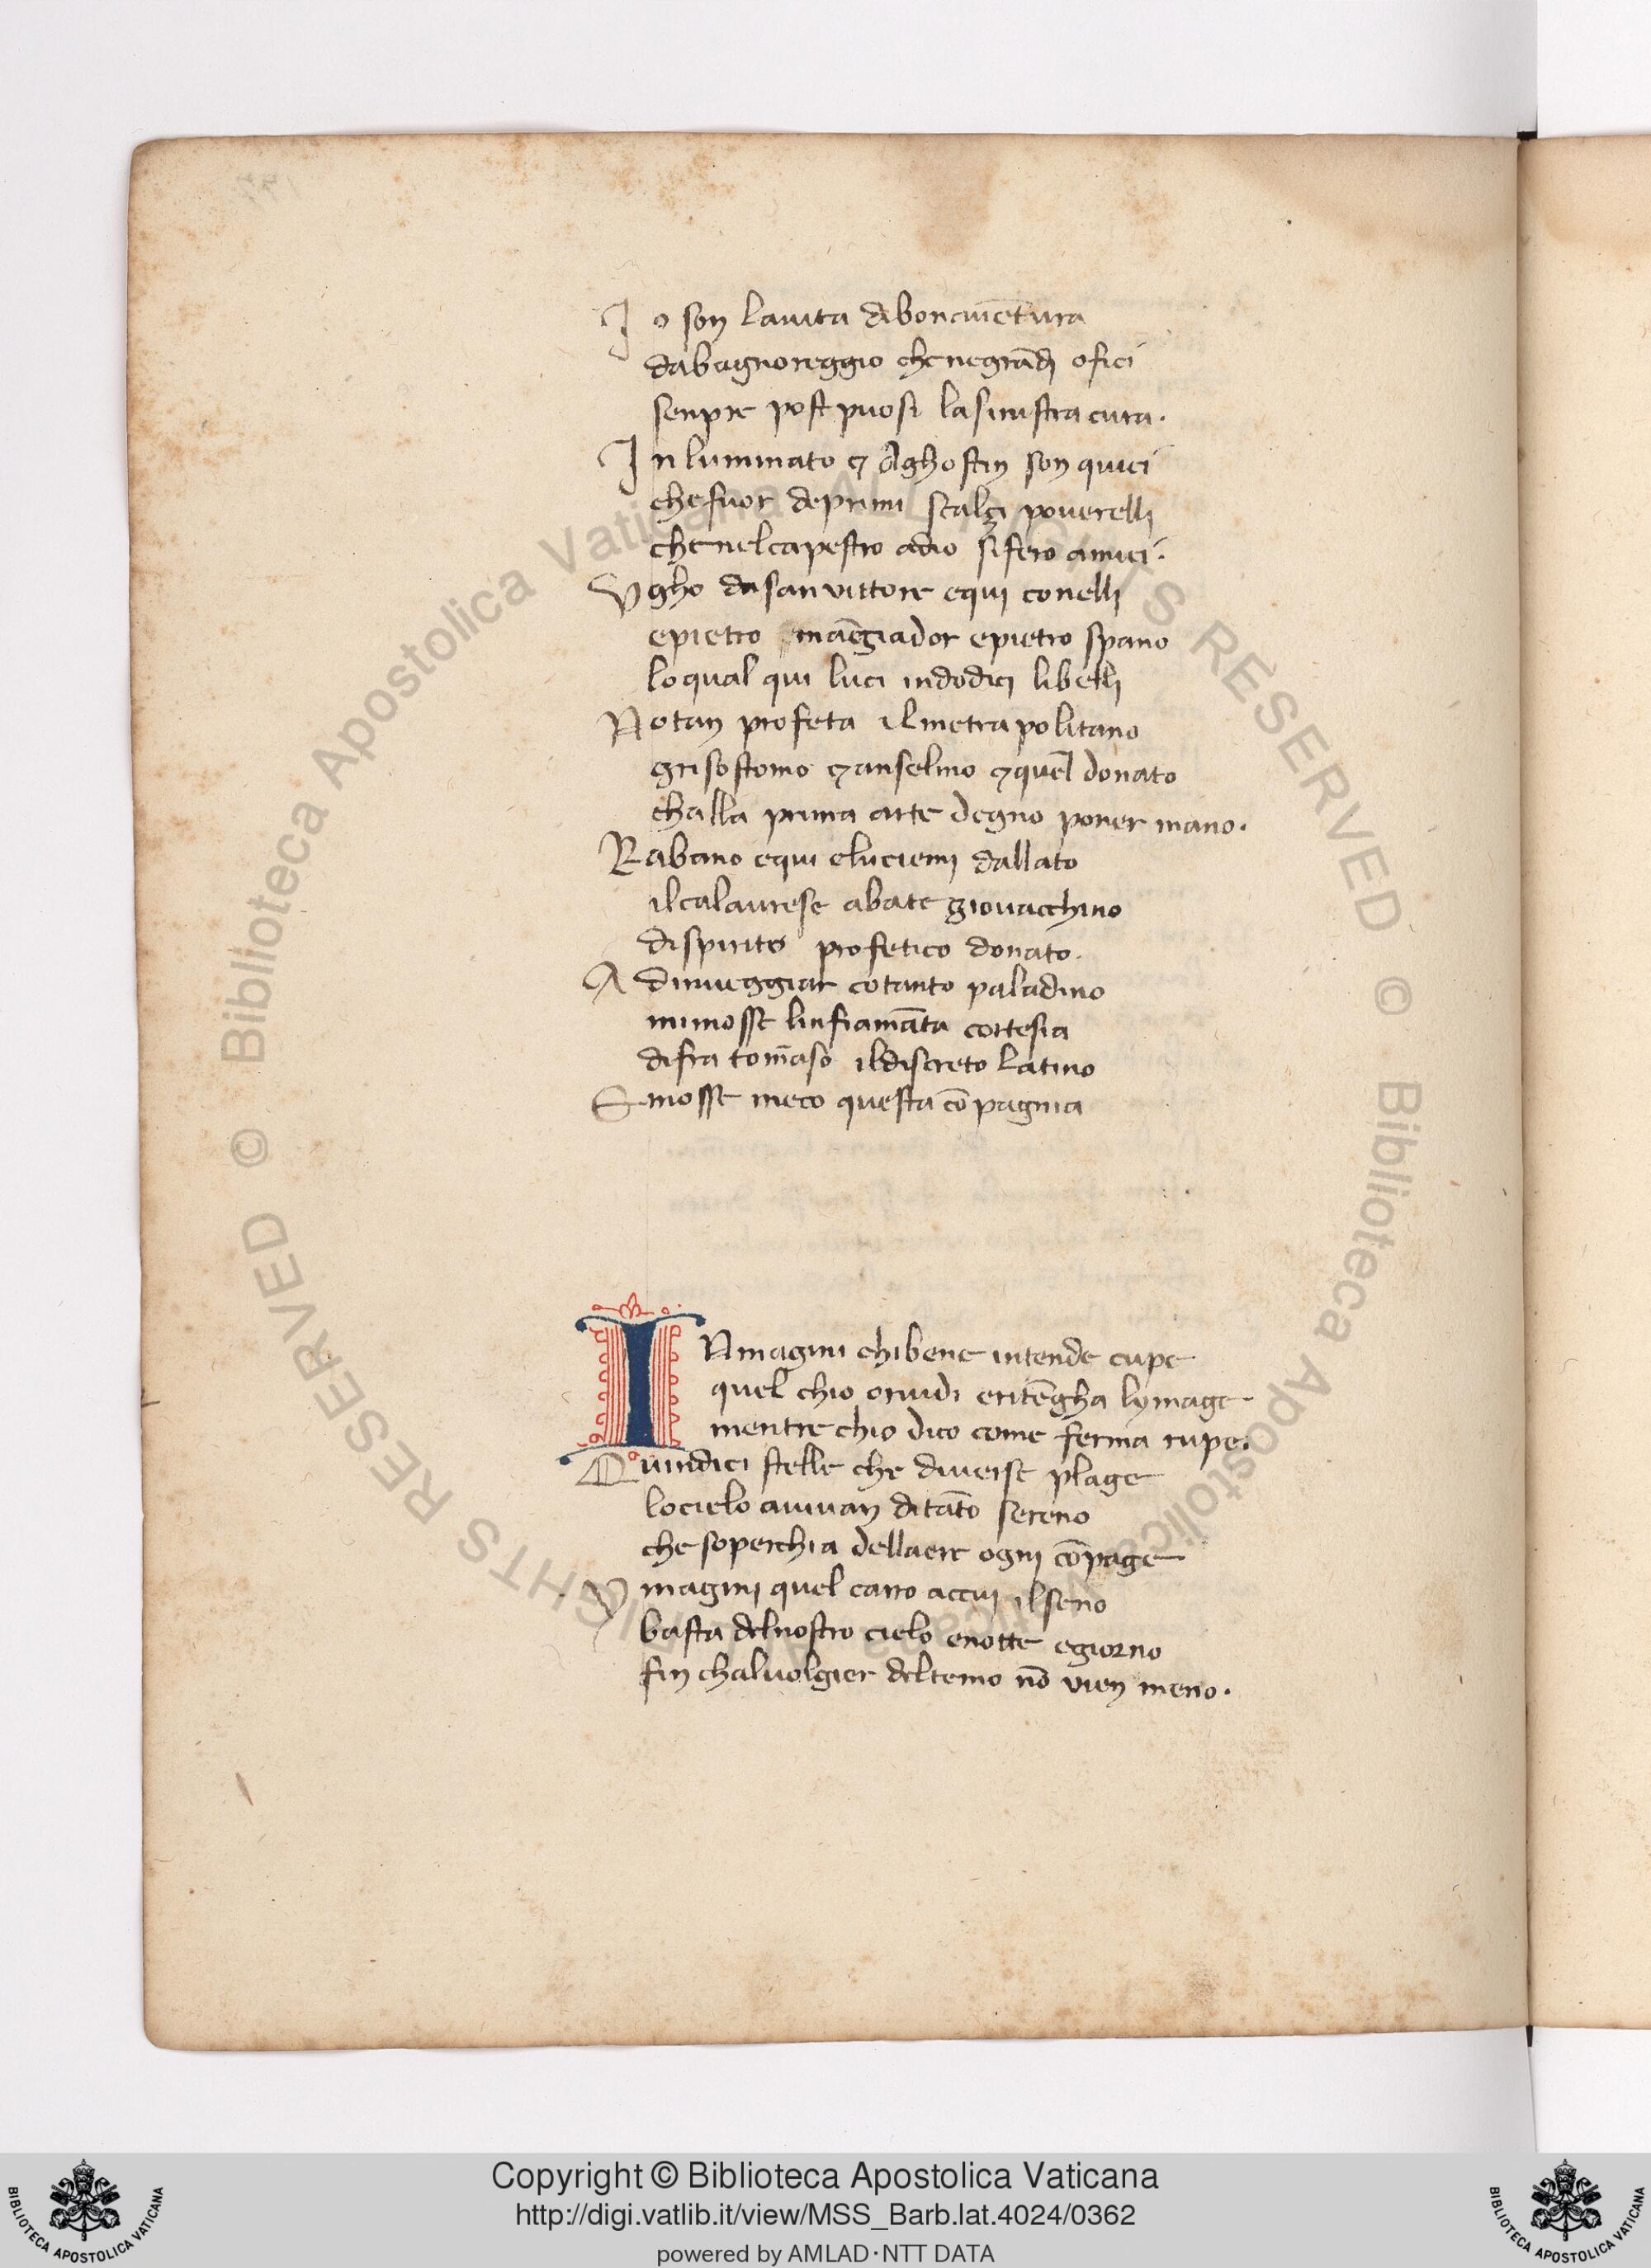 Io son lauita dibonauētura
dabagnoreggio che negrādi ofici
senpre post puosi lasinistra cura.
Inluminato ⁊ Aghostin son quici
che fuor deprimi scalçi pouerelli
che nelcapestro adio sifero amici.
Vgho da sanvittore equi conelli
epietro māgiador epietro spano
loqual qui luci indodici libelli
Natan profeta ilmetrapolitano
grisostomo ⁊ anselmo ⁊ quel donato
challa prima arte degno poner mano.
Rabano equi eluciemi dallato
ilcalaurese abate giouacchino
dispirito profetico donato.
A dinueggiar cotanto paladino
mimosse linfiamāta cortesia
difra tomaso ildiscreto latino
E mosse meco questa cōpagnia
INmagini chibene intende cupe
quel chio oruidi eritēgha lymage
mentre chio dico come ferma rupe.
Quindici stelle che diuerse plage
locielo auiuan ditāto sereno
che soperchia dellaere ogni cōpage
Ymagini quel carro accui ilseno
basta delnostro cielo enotte egiorno
fin chaluolgier deltemo nō vien meno.
Copyright © Biblioteca Apostolica Vaticana
http://digi.vatlib.it/view/MSS_Barb.lat.4024/0362
powered by AMLAD·NTT DATA
BIBLIOTECA APOSTOLICA VATICANA
BIBLIOTECA APOSTOLICA VATICANA
© Biblioteca Apostolica Vaticana ALL RIGHTS RESERVED © Biblioteca Apostolica Vaticana ALL RIGHTS RESERVED